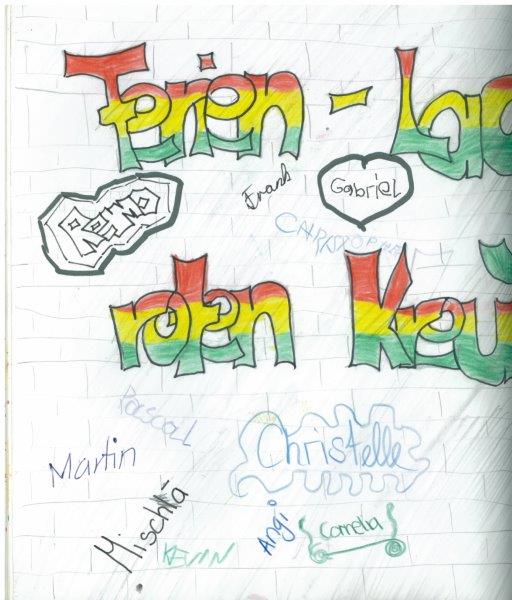 Ferien-Lag
Frank
Gabriel
Remo
roten Kreu
Pascal
Christelle
Martin
Mischa
Kevin
Angi
Cornelia